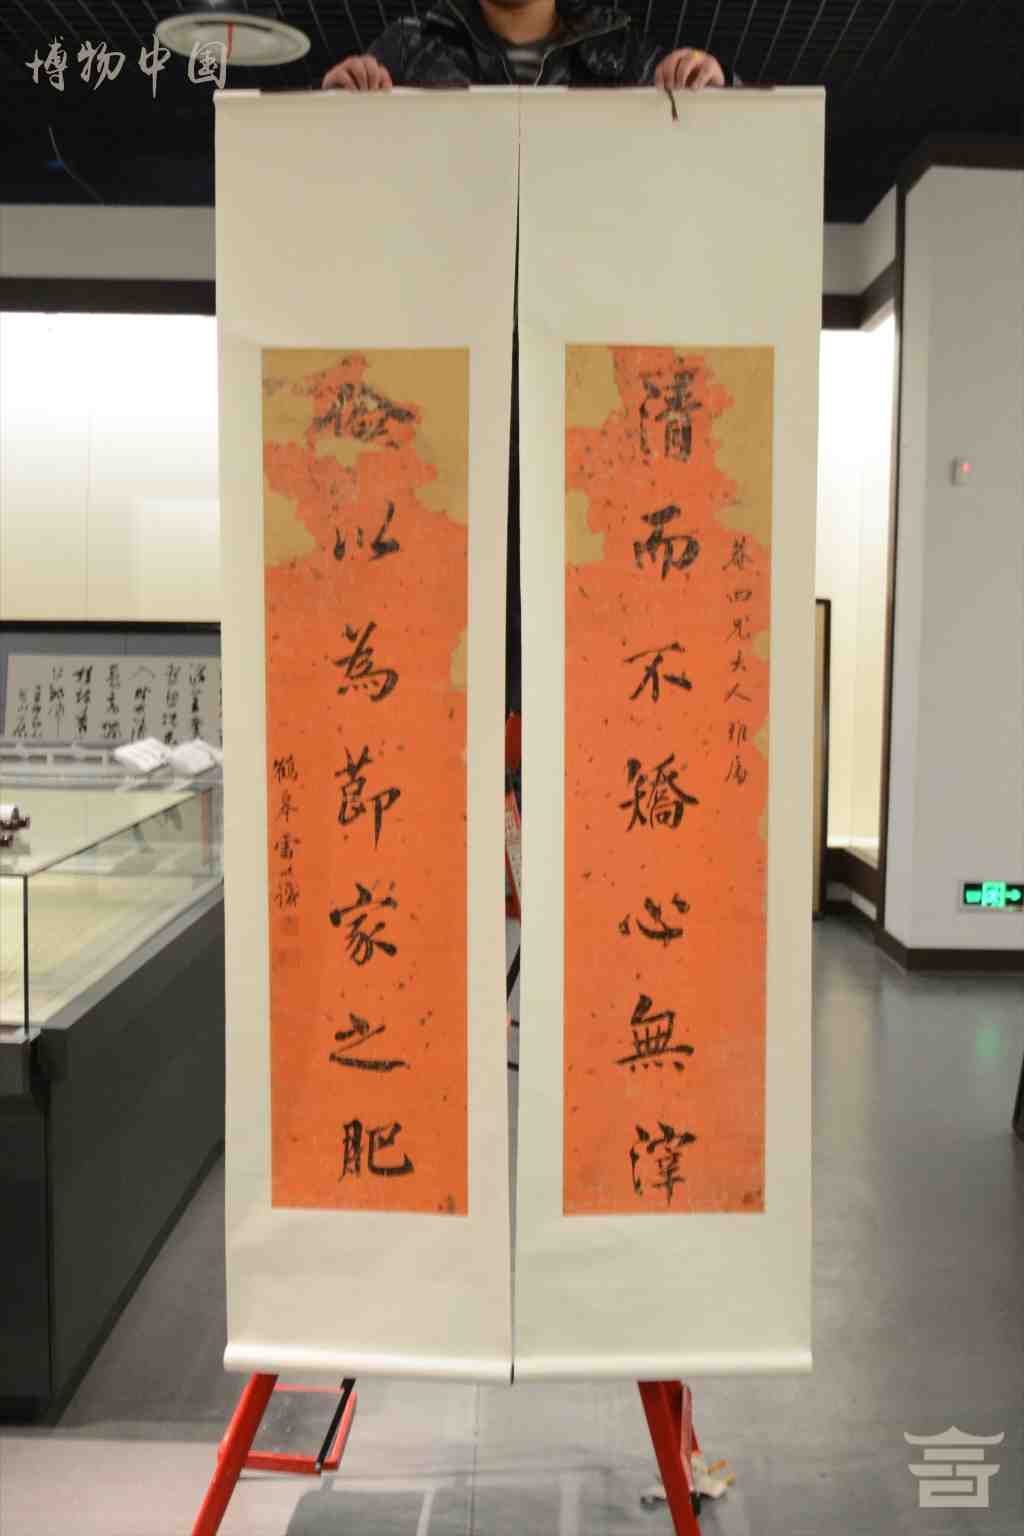 博物中国
清而不矯心無滓
恭四兄大人雅屬
儉以為節家之肥
鶴皋